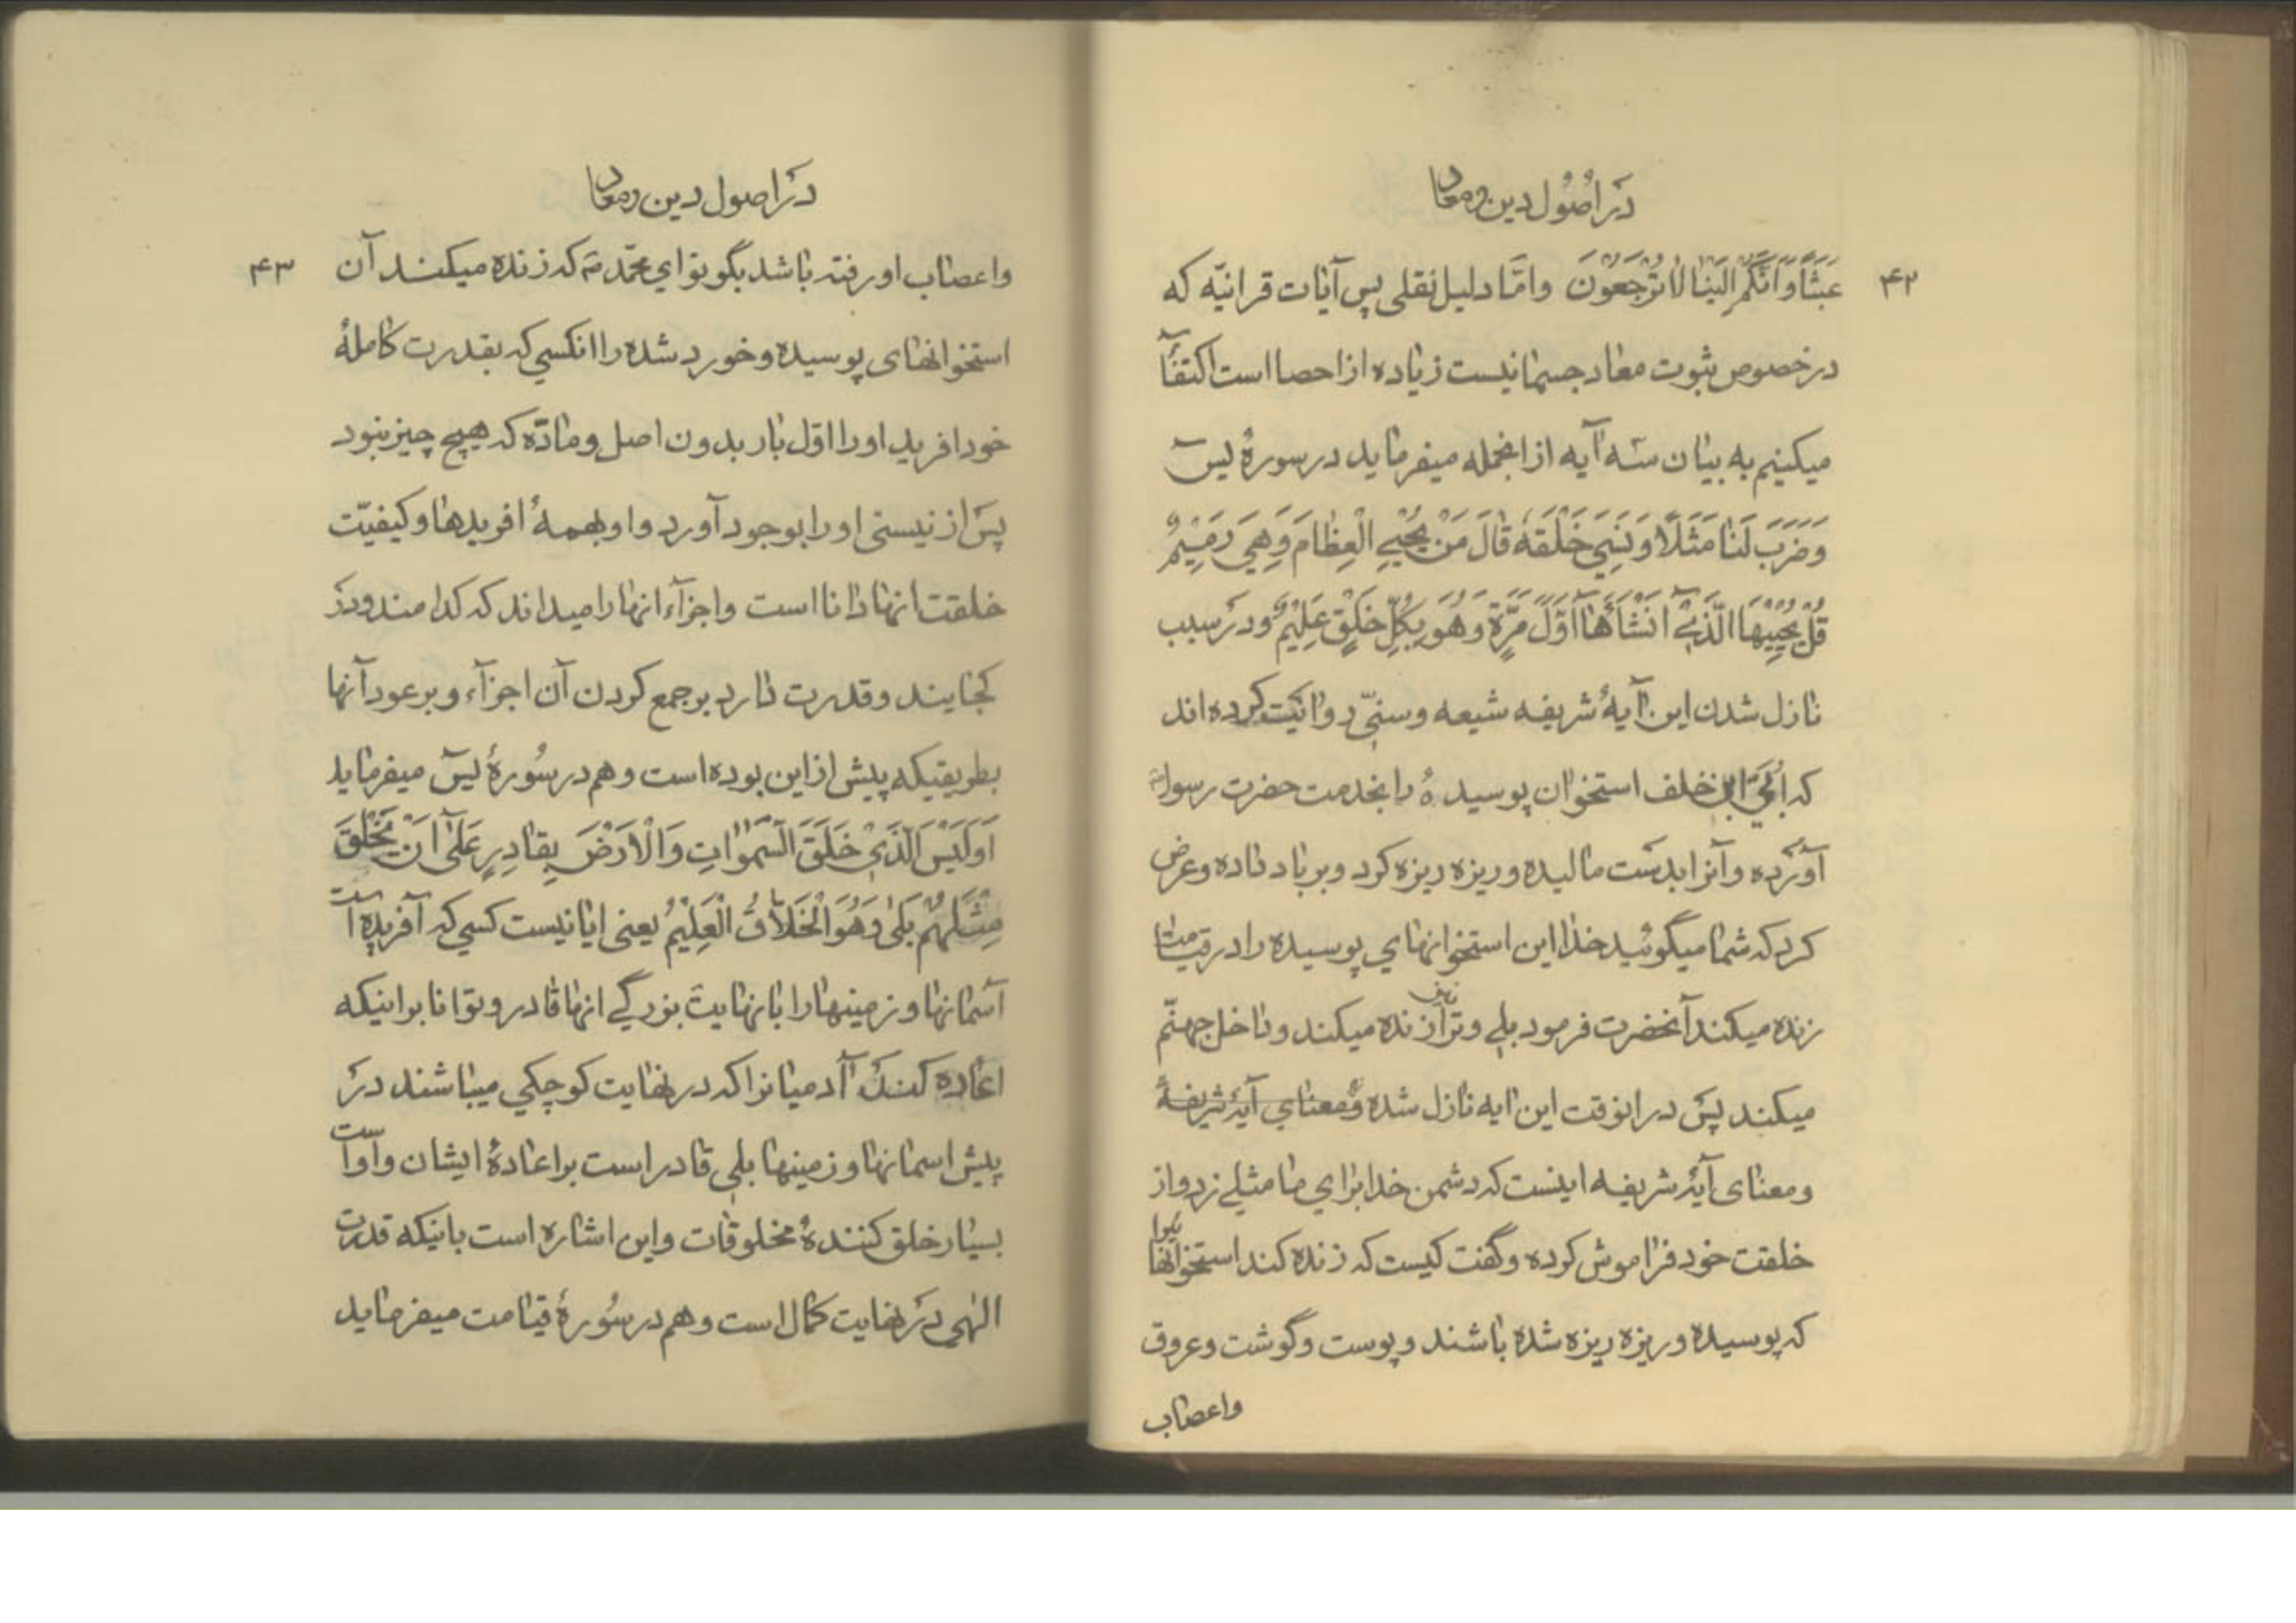 در اصول دین ومعاد
۴۲
عَبَثًا وَاَنَّکُمْ اِلَیْنٰا لٰا تُرْجَعُوْنَ وامّا دلیل نقلی پس آیات قرانیّه که
در خصوص ثبوت معاد جسمانیست زیاده از احصا است اکتفآ
میکنیم به بیان سه آیه از انجمله میفرماید در سورهٔ یسٓ
وَضَرَبَ لَنٰا مَثَلًا وَنَسِیَ خَلْقَهُ قٰالَ مَنْ یُحْیِی الْعِظٰامَ وَهِیَ رَمِیْمٌ
قُلْ یُحْیِیْهَا الَّذِیْٓ اَنْشَأَهٰا اَوَّلَ مَرَّةٍ وَهُوَ بِکُلِّ خَلْقٍ عَلِیْمٌ ودر سبب
نازل شدن این آیهٔ شریفه شیعه وسنّی روایت کرده اند
که اُبَیّ ابن خلف استخوان پوسیدهٔ را بخدمت حضرت رسول
آورده وآنرا بدست مالیده وریزه ریزه کرد وبر باد داده وعرض
کرد که شما میگوئید خدا این استخوانهای پوسیده را در قیامت
زنده میکند آنحضرت فرمود بلی وترا نیز زنده میکند وداخل جهنّم
میکند پس در انوقت این ایه نازل شده ومعنای آیهٔ شریفهٔ
ومعنای آیهٔ شریفه اینست که دشمن خدا برای ما مثلی زد واز
خلقت خود فراموش کرده وگفت کیست که زنده کند استخوانهایرا
که پوسیده وریزه ریزه شده باشند وپوست وگوشت وعروق
واعصاب
در اصول دین ومعاد
۴۳
واعصاب او رفته باشد بگو تو ای محمّد ص که زنده میکند آن
استخوانهای پوسیده وخورد شده را انکسی که بقدرت کاملهٔ
خود افرید او را اوّل بار بدون اصل ومادّه که هیچ چیز نبود
پس از نیستی او را بوجود آورد واو بهمهٔ افریدها وکیفیّت
خلقت انها دانا است واجزآء انها را میداند که کدامند ودر
کجایند وقدرت دارد بر جمع کردن آن اجزآء وبر عود آنها
بطریقیکه پیش از این بوده است وهم در سُورهٔ یسٓ میفرماید
اَوَلَیْسَ الَّذِیْ خَلَقَ السَّمٰوٰاتِ وَالْاَرْضَ بِقٰادِرٍ عَلٰٓی اَنْ یَخْلُقَ
مِثْلَهُمْ بَلٰی وَهُوَ الْخَلَّاقُ الْعَلِیْمُ یعنی ایا نیست کسی که آفریده است
آسمانها وزمینها را با نهایت بزرگی انها قادر وتوانا بر اینکه
اعاده کند آدمیانرا که در نهایت کوچکی میباشند در
پیش اسمانها وزمینها بلی قادر است بر اعادهٔ ایشان واو است
بسیار خلق کنندهٔ مخلوقات واین اشاره است باینکه قدرت
الٰهی در نهایت کمال است وهم در سُورهٔ قیامت میفرماید